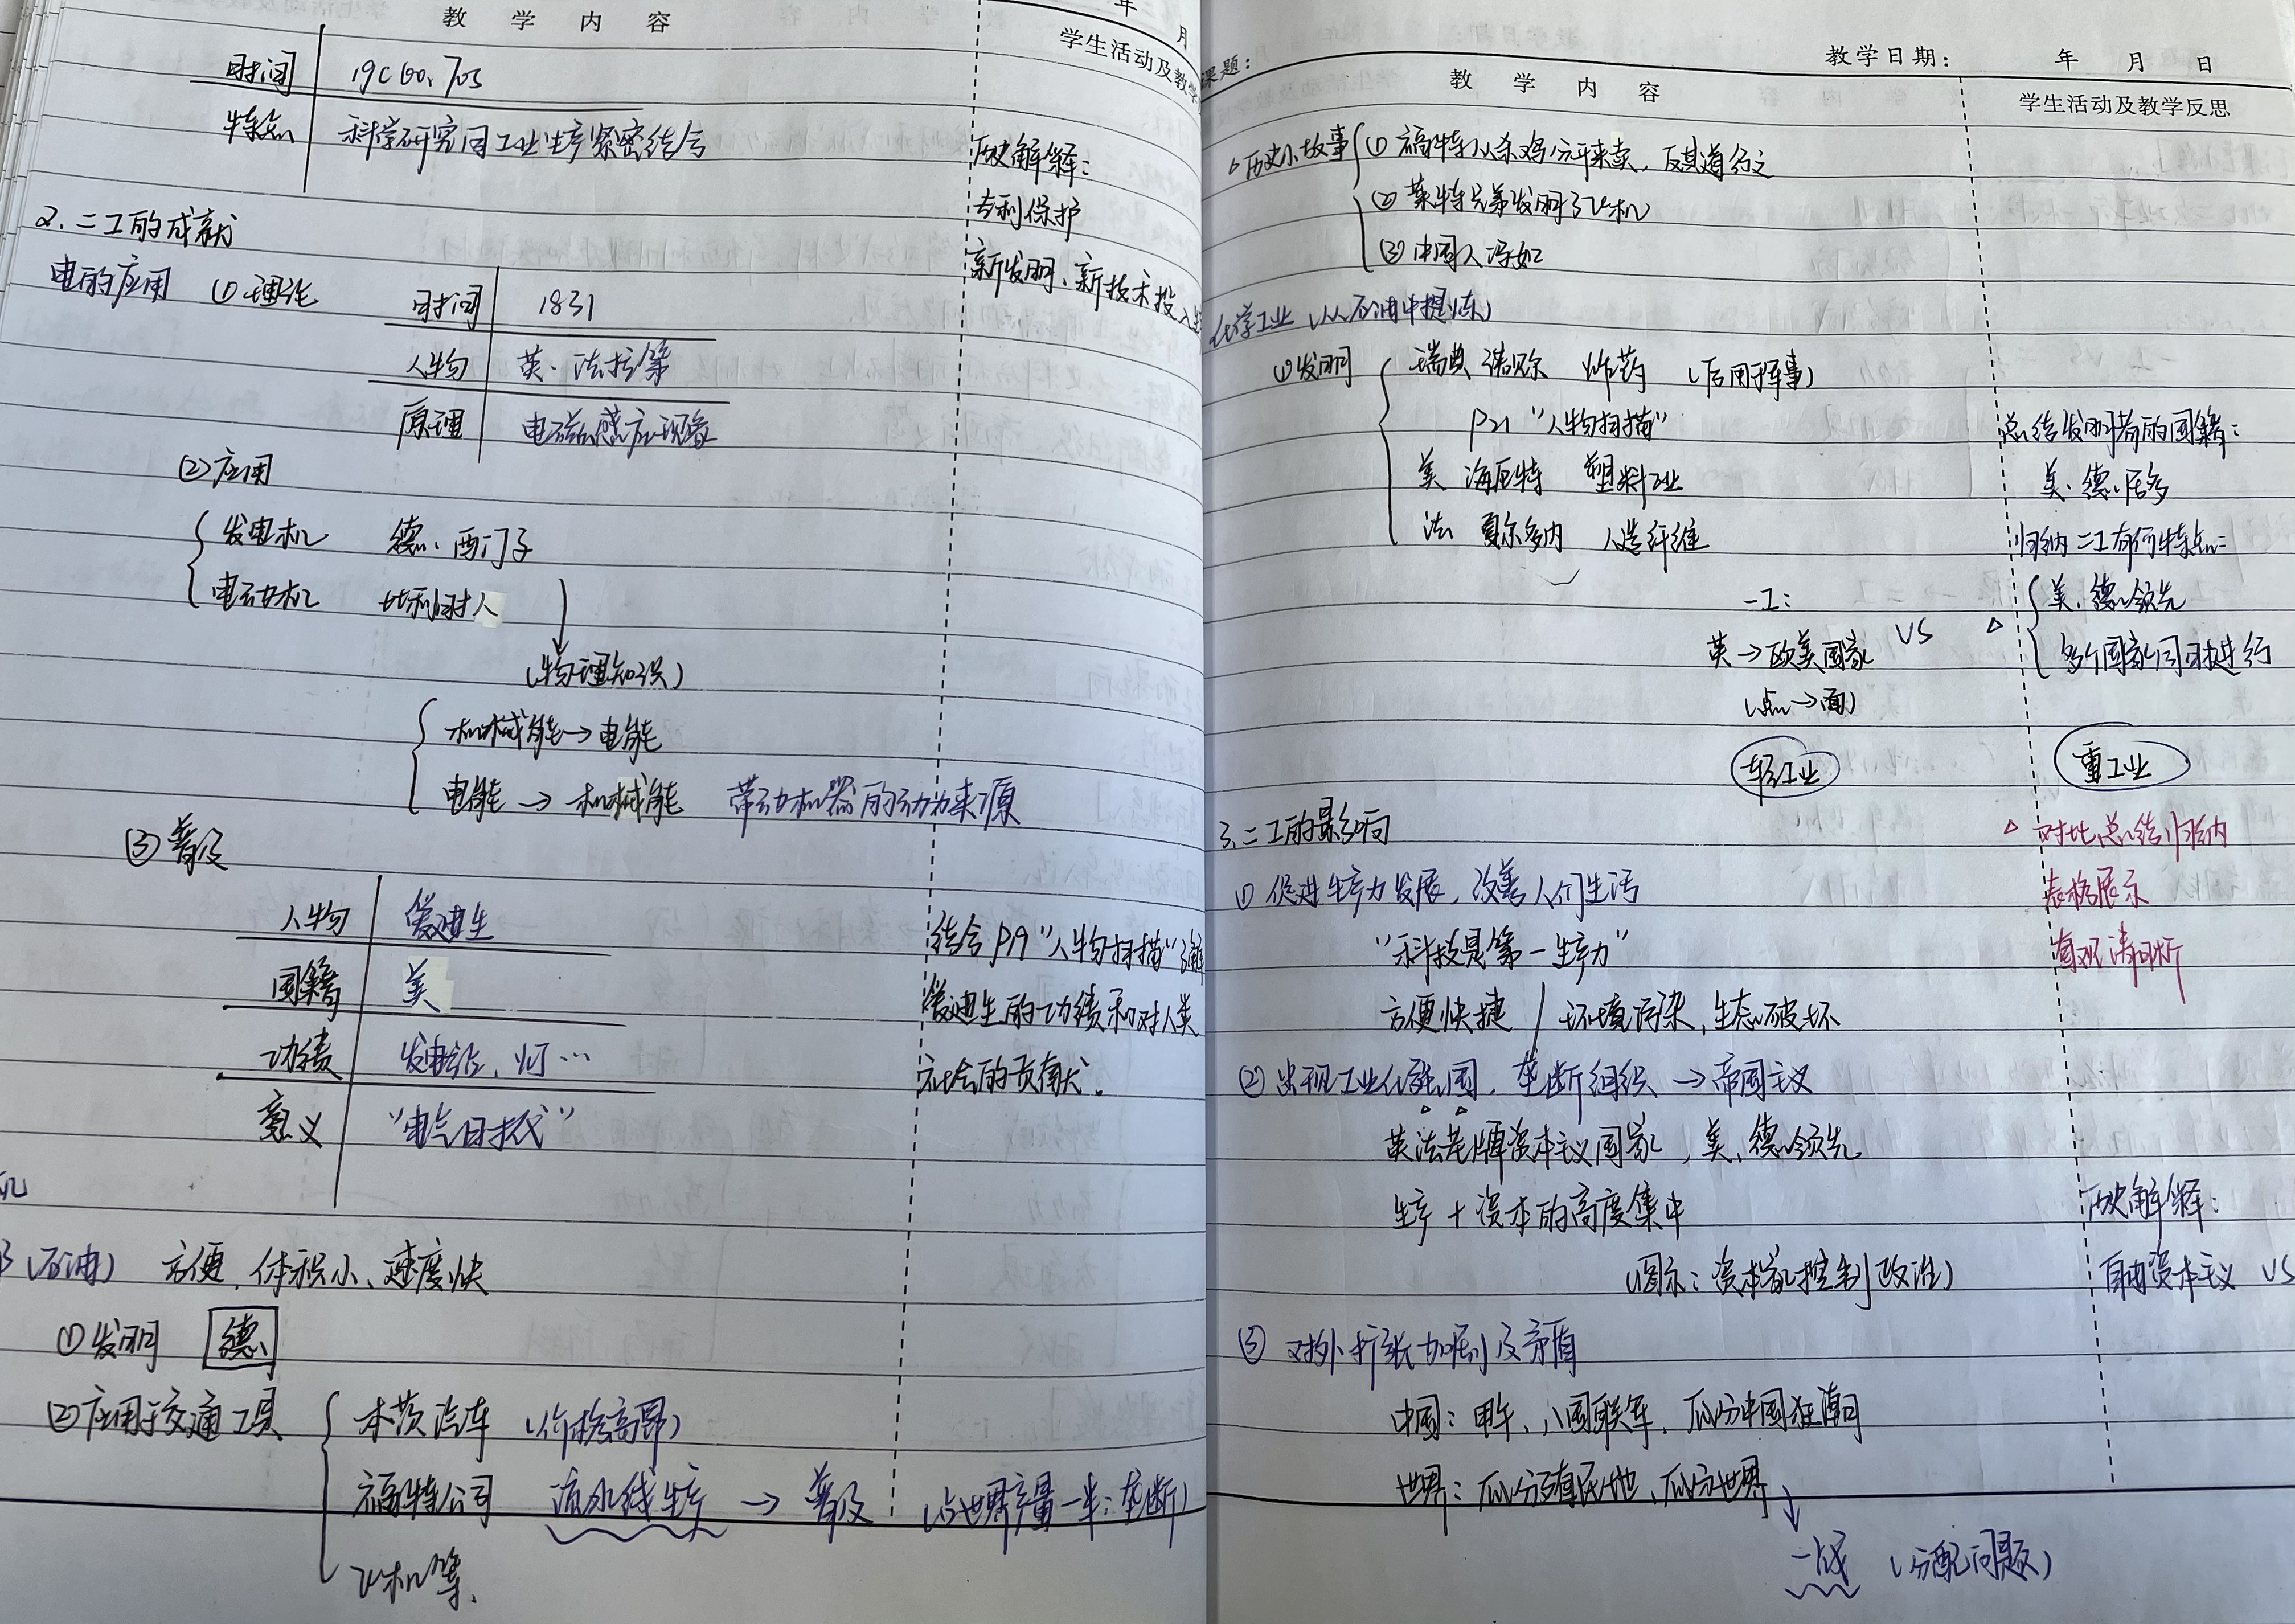 教 学 内 容
年 月
学生活动及教学
时间 19C60、70s
特点 科学研究同工业生产紧密结合
历史解释：
专利保护
新发明、新技术投入生
2、二工的成就
电的应用 ①理论 时间 1831
人物 英·法拉第
原理 电磁感应现象
②应用
发电机 德·西门子
电动机 比利时人
（物理知识）
机械能→电能
电能→机械能 带动机器的动力来源
③普及
人物 爱迪生
国籍 美
功绩 发电站、灯…
意义 “电气时代”
结合P19“人物扫描”
爱迪生的功绩和对人类
社会的贡献。
机
（石油） 方便、体积小、速度快
①发明 德
②应用于交通工具 本茨汽车 （价格高昂）
福特公司 流水线生产 → 普及 （占世界产量一半：垄断）
飞机等、
课题：
教学日期： 年 月 日
教 学 内 容
学生活动及教学反思
历史小故事 ①福特从杀鸡分开来卖，反其道行之
②莱特兄弟发明了飞机
③中国人冯如
化学工业（从石油中提炼）
①发明 瑞典 诺贝尔 炸药 （后用于军事）
P21“人物扫描”
美 海厄特 塑料工业
法 夏尔多内 人造纤维
总结发明者的国籍：
美、德居多
归纳二工有何特点：
美、德领先
多个国家同时进行
一工：
英→欧美国家 VS
（点→面）
轻工业 重工业
3、二工的影响
△ 对比总结归纳
表格展示
直观清晰
①促进生产力发展，改善人们生活
“科技是第一生产力”
方便快捷 / 环境污染，生态破坏
②出现工业化强国，垄断组织→帝国主义
英法老牌资本主义国家，美、德领先
生产+资本的高度集中
（图示：资本家控制政治）
历史解释：
自由资本主义 VS
③对外扩张加剧及矛盾
中国：甲午、八国联军、瓜分中国狂潮
世界：瓜分殖民地、瓜分世界
一战 （分配问题）